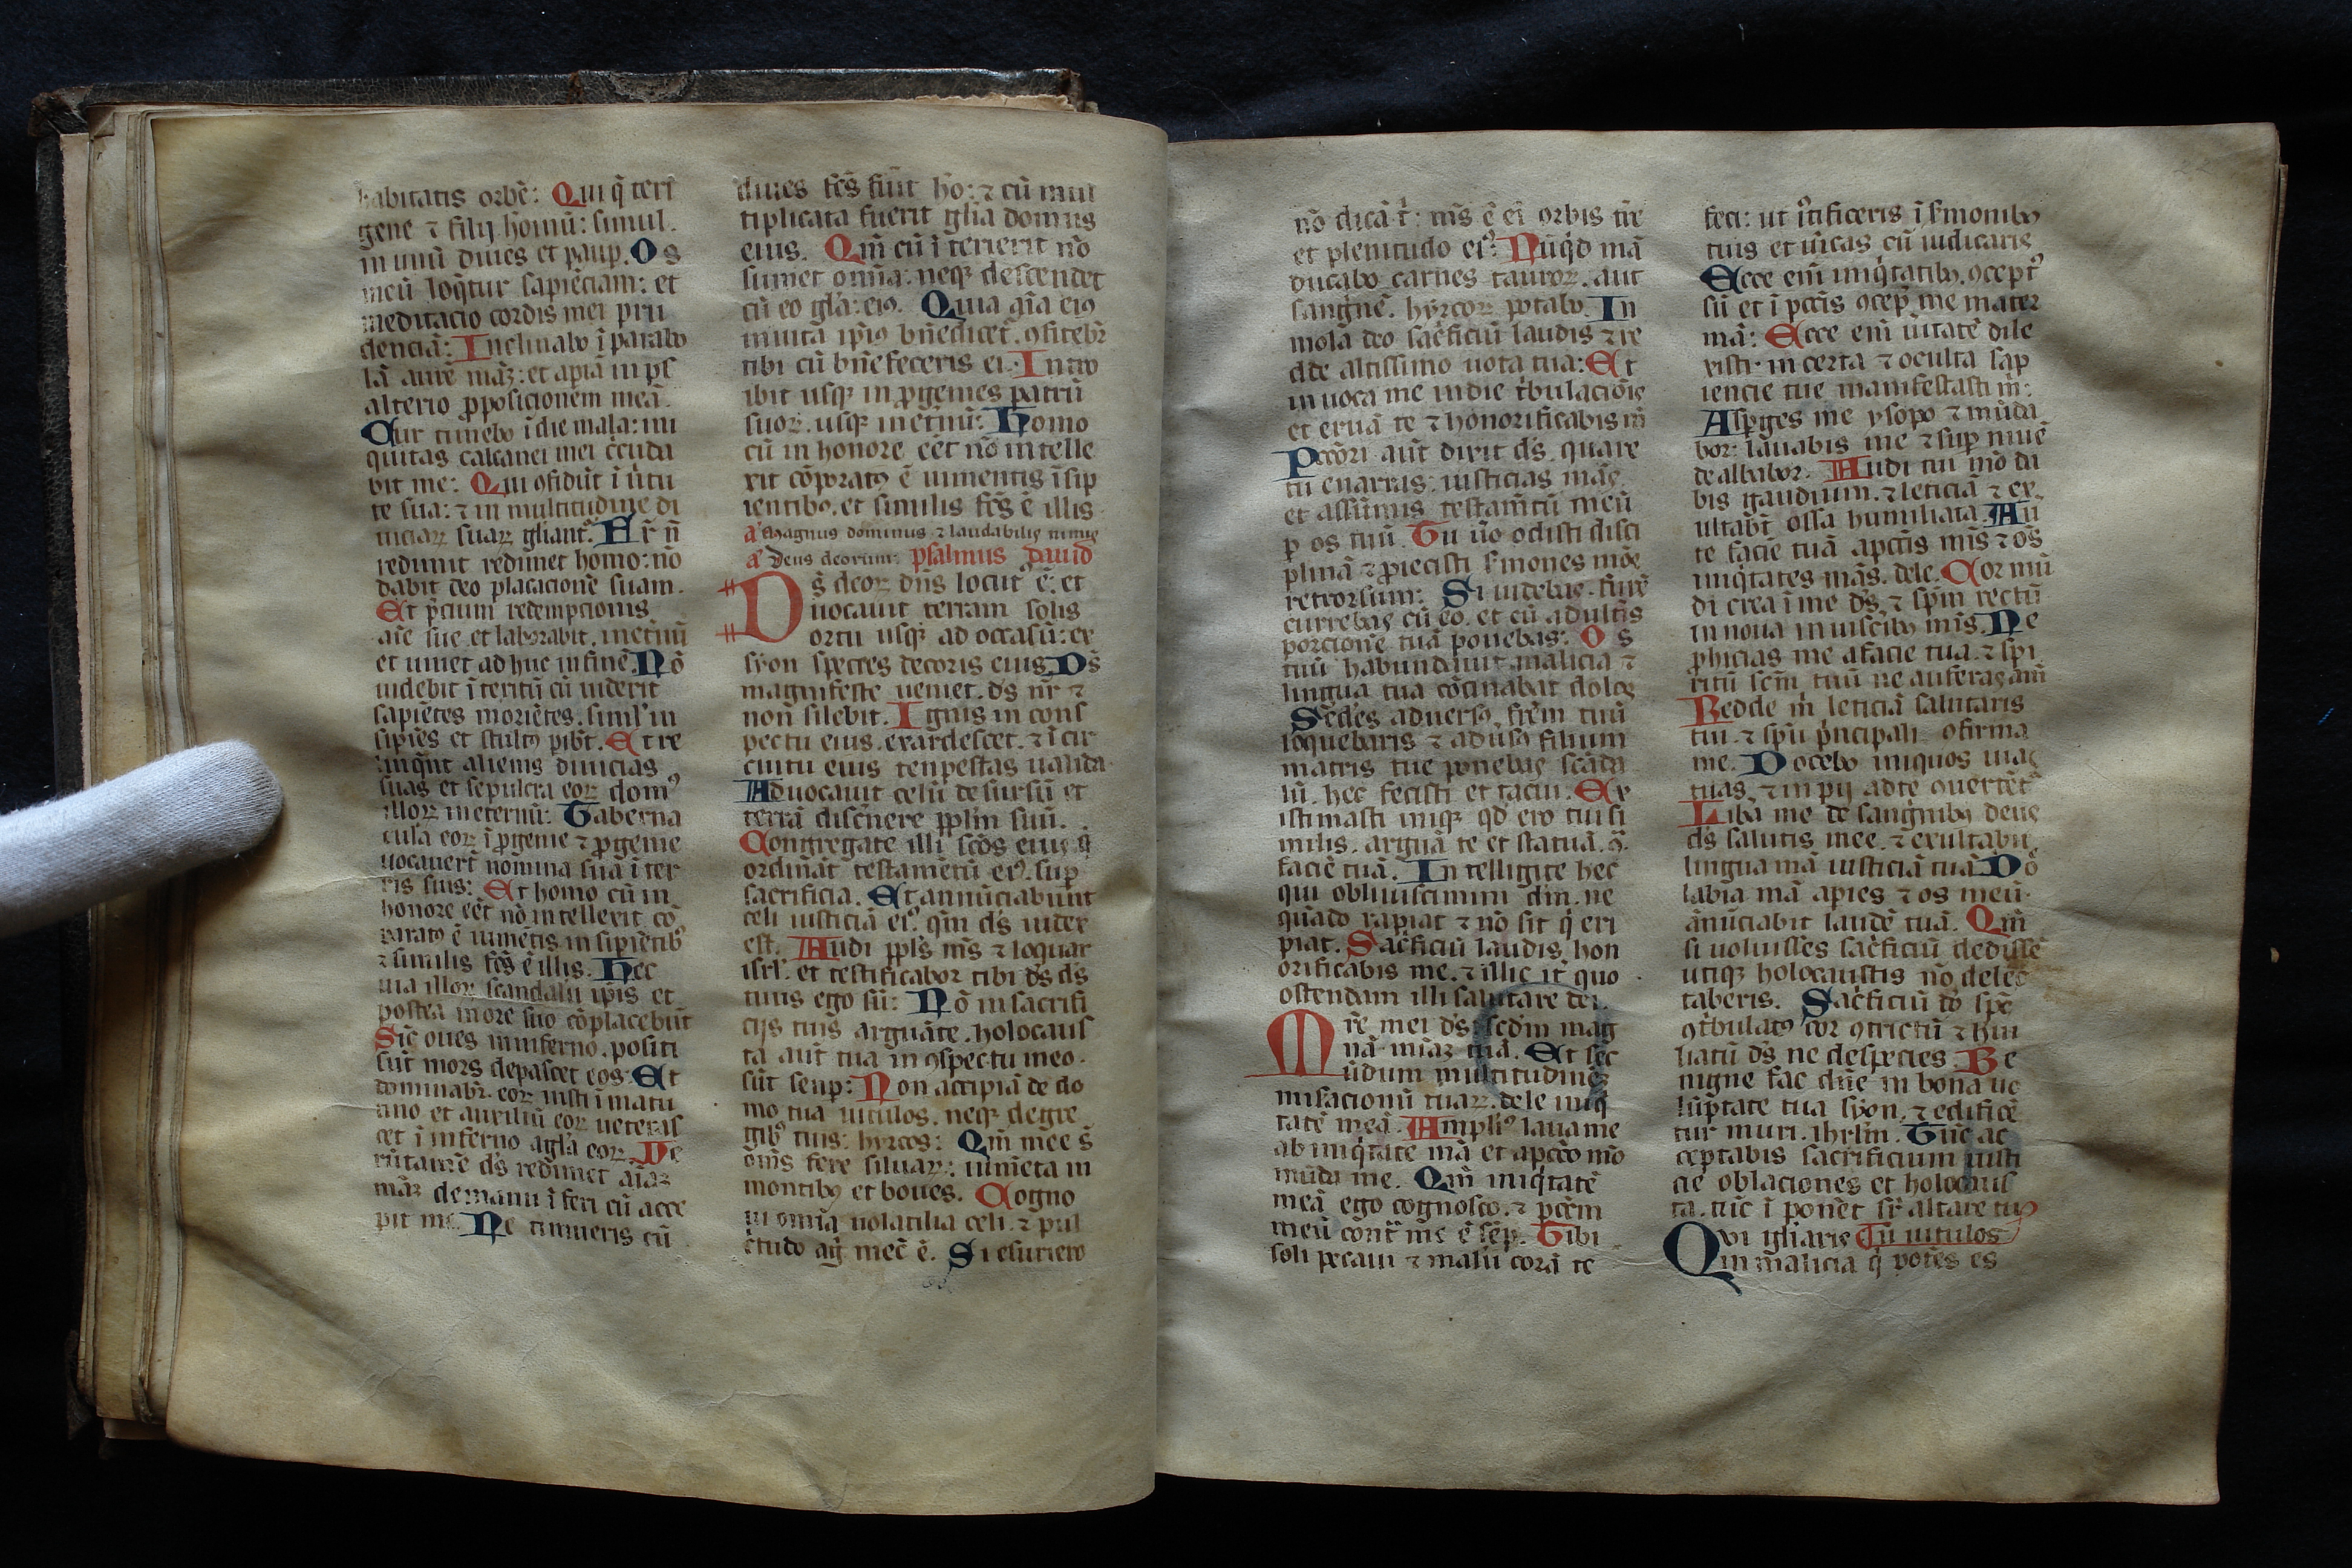 habitatis orbē: Qui q̄ teri
gene ⁊ filij homū: simul.
in unū diues et paup. Os
meū loq̄tur sapiēciam: et
meditacio cordis mei pru
denciā: Inclinabo ī parabo
lā aurē māꝫ: et apiā in ps
alterio ꝓposicionem meā.
Cur timebo ī die mala: ini
quitas calcanei mei c̄cūda
bit me: Qui ꝯfidūt ī ūtu
te sua: ⁊ in multitudine di
uiciaꝝ suaꝝ gl̄iant᷑. Fr̄ n̄
redimit redimet homo: nō
dabit deo placacionē suam.
Et p̄cium redempcionis
aīe sue et laborabit. in et̄nū
et uiuet ad huc in finē. Nō
uidebit ī teritū cū uiderit
sapiētes moriētes. simł in
sipiēs et stultꝰ pibt̄. Et re
linq̄nt alienis diuicias
suas et sepulcra eoꝝ domꝰ
illoꝝ in et̄ernū: Taberna
cula eoꝝ ī ꝓgenie ⁊ ꝓgenie
uocauer̄t nomina sua ī ter
ris suis: Et homo cū in
honore eēt nō intellexit cō
paratꝰ ē iumētis in sipiētibꝰ
⁊ similis fc̄s ē illis. Hec
uia illoꝝ scandalū ip̄is et
postea in ore suo cōplacebūt
Sic̄ oues in inferno. positi
sūt mors depascet eos: Et
dominabr̄. eoꝝ iusti ī matu
tino et auxiliū eoꝝ ueteras
cet ī inferno a gl̄a eoꝝ. Ve
rūtam̄e ds̄ redimet aīaꝫ
māꝫ de manu ī feri cū acce
pit me. Ne timueris cū
diues fc̄s fuit hō: ⁊ cū mul
tiplicata fuerit gl̄ia domus
eius. Qm̄ cū ī terierit nō
sumet omīa: neqꝫ descendet
cū eo gl̄a: eiꝰ. Quia aīa eiꝰ
in uita ip̄iꝰ bn̄edicet᷑. ꝯfitebr̄
tibi cū bn̄e feceris ei. Intro
ibit usqꝫ in ꝓgenies patrū
suoꝝ. usqꝫ in et̄nū: Homo
cū in honore eēt nō intelle
xit cōparatꝰ ē iumentis īsip
ientibꝰ. et similis fc̄s ē illis
a᷑ Magnus dominus ⁊ laudabilis nimis
a᷑ Deus deorum: psalmus dauid
Ds̄ deoꝝ dn̄s locut᷑ ē: et
uocauit terram solis
ortu usqꝫ ad occasū: ex
syon species decoris eius Ds̄
magnifeste ueniet. ds̄ nr̄ ⁊
non silebit. Ignis in cons
pectu eius. exardescet. ⁊ ī cir
cuitu eius tenpestas ualida
Aduocauit celū de sursū et
terrā disc̄nere ppłm suū.
Congregate illi sc̄os eius q̄
ordināt testamētū eiꝰ. sup
sacrificia. Et annūciabunt
celi iusticiā eiꝰ. qm̄ ds̄ iudex
est. Audi ppłs m̄s ⁊ loquar
isrł. et testificabor tibi ds̄ ds̄
tuus ego sū: Nō in sacrifi
cijs tuis arguāte. holocaus
ta aūt tua in ꝯspectu meo.
sūt senp: Non accipiā de do
mo tua uitulos. neqꝫ de gre
gibꝰ tuis: hyrcos: Qm̄ mee s̄
om̄s fere siluaꝝ: iumēta in
montibꝰ et boues. Cogno
ui omīa uolatilia celi. ⁊ pul
c̄tudo ag᷑ mec̄ ē. Si esuriero
nō dicā t᷑: m̄s ē ei᷑ orbis tr̄e
et plenitudo eiꝰ: Nūq̄d mā
ducabo carnes tauroꝝ. aut
sangnē. hyrcoꝝ potabo. In
mola deo sac̄ficiū laudis ⁊ re
dde altissimo uota tua: Et
in uoca me in die t᷑bulacionis
et eruā te ⁊ honorificabis m̄
Pccōri aūt dixit ds̄. quare
tu enarras: iusticias mās.
et assūmis testam̄tū meū
p os tuū. Tu ūo odisti disci
plinā ⁊ ꝓiecisti s᷑mones mōs
retrorsum: Si uidebas. furē
currebas cū eo. et cū adult̄is
porcionē tuā ponebas: Os
tuū habundauit malicia ⁊
lingua tua cōcinabat dolos
Sedes aduersꝰ. frēm tuū
loquebaris ⁊ adūsꝰ filium
matris tue ponebas scāda
lū. hec fecisti et tacui. Ex
istimasti iniqꝫ qd̄ ero tui si
milis. arguā te et statuā. ꝯ̄.
faciē tuā. Intelligite hec
qui obliuiscimini dm̄. ne
quādo rapiat ⁊ nō sit q̄ eri
piat. Sac̄ficiū laudis. hon
orificabis me. ⁊ illic it᷑ quo
ostendam illi salutare dei.
Mr̄e mei ds̄: scdm̄ mag
nā miāꝫ tuā. Et sec
ūdum multitudinēꝫ
misacionū tuaꝝ. dele iniq̄
tatē meā. Ampliꝰ laua me
ab iniq̄tate mā et a pccō mō
mūda me. Qm̄ iniq̄tatē
meā ego cognosco. ⁊ pccm̄
meū cont̄ me ē sēp. Tibi
soli pecaui ⁊ malū corā te
feci: ut i᷑tificeris ī s᷑monibꝰ
tuis et uīcas cū iudicaris
Ecce em̄ iniq̄tatibꝰ. ꝯcept᷑
sū et ī pccīs ꝯcep̄ me mater
mā: Ecce em̄ ūitatē dile
xisti. incerta ⁊ oculta sap
iencie tue manifestasti m̄:
Asp̄ges me ysopo ⁊ mūda
bor: lauabis me ⁊ sup niuē
dealbabor. Audi tui mō da
bis gaudium. ⁊ leticiā ⁊ ex
ultabt̄ ossa humiliata. Au
te faciē tuā a pccīs mīs ⁊ os
iniq̄tates mās. dele. Cor mū
dū crea ī me ds̄. ⁊ spm̄ rectū
in noua in uiscibꝰ mīs. Ne
ꝓhicias me a facie tua. ⁊ spi
ritū sc̄m tuū ne auferas a m̄
Redde m̄ leticiā salutaris
tui. ⁊ spū p̄ncipali. ꝯfirma
me. Docebo iniquos uias
tuas. ⁊ inpij ad te ꝯuertēt᷑
Libā me de sangnibꝰ deus
ds̄ salutis mee. ⁊ exultabit
lingua mā iusticiā tuā. Dō
labia mā apies ⁊ os meū.
ānūciabit laudē tuā. Qm̄
si uoluisses sac̄ficiū dedissē
utiqꝫ holocaustis nō delec
taberis. Sac̄ficiū dō spc̄
ꝯt᷑bulatꝰ cor ꝯtrictū ⁊ hui
liatū ds̄ ne despicies. Be
nigne fac dn̄e in bona uo
lūptate tua syon. ⁊ edificē
tur muri. ihrl̄m. Tūc ac
ceptabis sacrificium iusti
cie oblaciones et holocaus
ta. tūc ī ponēt sr᷑ altare tuū
Qvi gl̄iaris Tū uitulos
Qm malicia q̄ potēs es